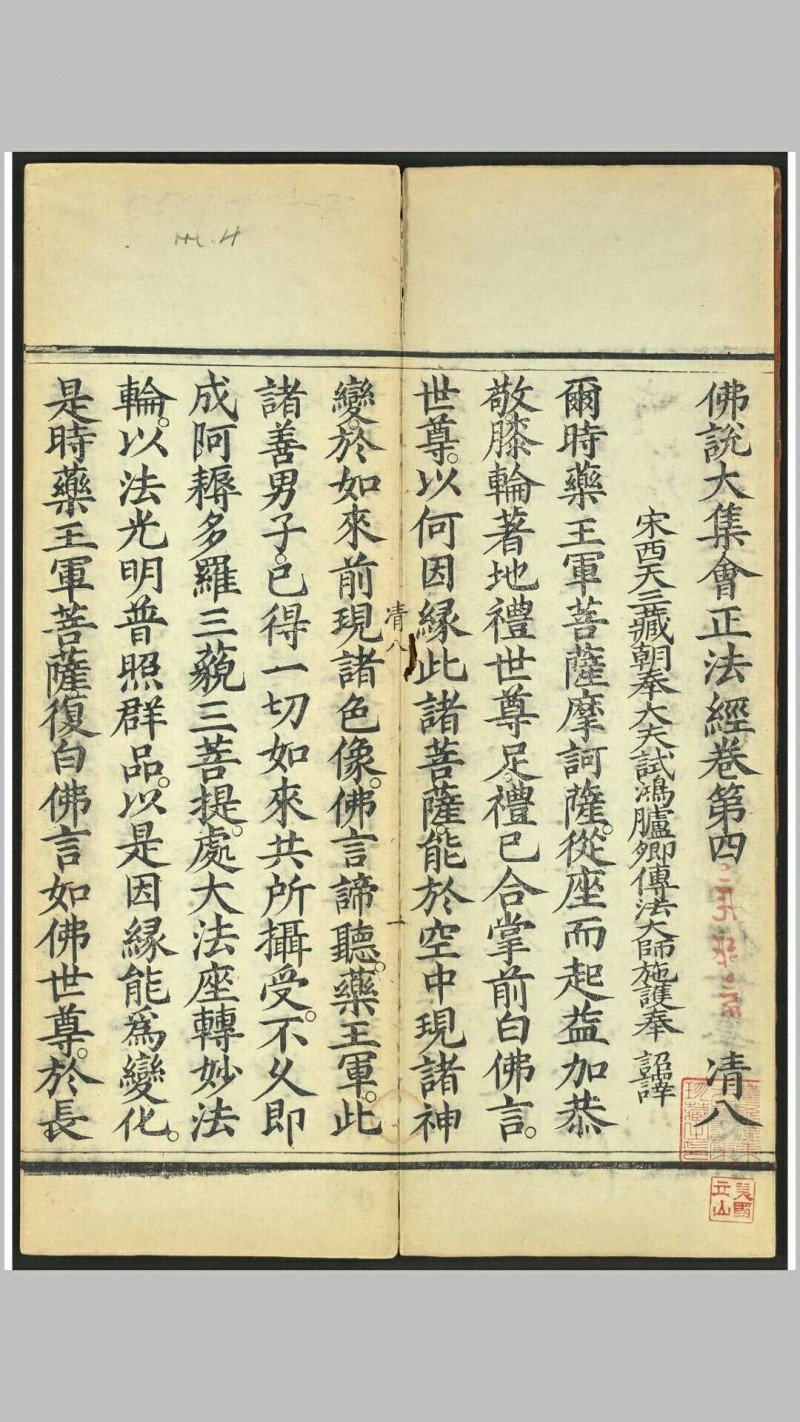 佛說大集會正法經卷第四 凊八
宋西天三藏朝奉大夫試鴻臚卿傳法大師施護奉 詔譯
爾時藥王軍菩薩摩訶薩。從座而起益加恭
敬膝輪著地禮世尊足。禮已合掌前白佛言。
世尊。以何因緣此諸菩薩。能於空中現諸神
凊八 一
變。於如來前現諸色像。佛言諦聽。藥王軍。此
諸善男子。已得一切如來共所攝受。不久即
成阿耨多羅三藐三菩提。處大法座轉妙法
輪。以法光明普照群品。以是因緣能爲變化。
是時藥王軍菩薩復白佛言如佛世尊。於長
美國
立山